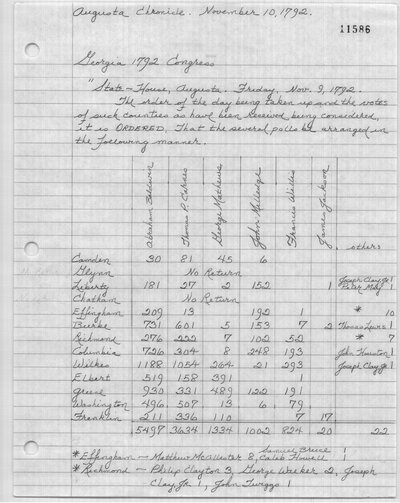 Augusta Chronicle. November 10, 1792.
11586
Georgia 1792 Congress
"State-House, Augusta. Friday, Nov. 9, 1792.
The order of the day being taken up and the votes
of such counties as have been received being considered,
it is ORDERED, That the several polls be arranged in
the following manner.
Abraham Baldwin Thomas P. Carnes George Mathews John Milledge Francis Willis James Jackson others
Camden 30 81 45 6
Glynn No Return
Joseph Clay Jr 1
Liberty 181 27 2 152 1 Peter 1
Chatham No Return
Effingham 209 13 192 1 * 10
Burke 731 601 5 153 7 2 Thomas Lewis 1
Richmond 276 222 7 102 52 * 7
Columbia 726 304 8 248 193 John Houston 1
Wilkes 1188 1054 264 21 293 Joseph Clay Jr 1
Elbert 519 158 391 1
Greene 930 331 489 122 191
Washington 496 507 13 6 79
Franklin 211 336 110 7 17
5497 3634 1334 1002 824 20 22
Samuel Bruce 1
*Effingham - Matthew McAllister 8, Caleb Howell 1
*Richmond - Philip Clayton 3, George Walker 2, Joseph
Clay, Jr 1, John Twiggs 1